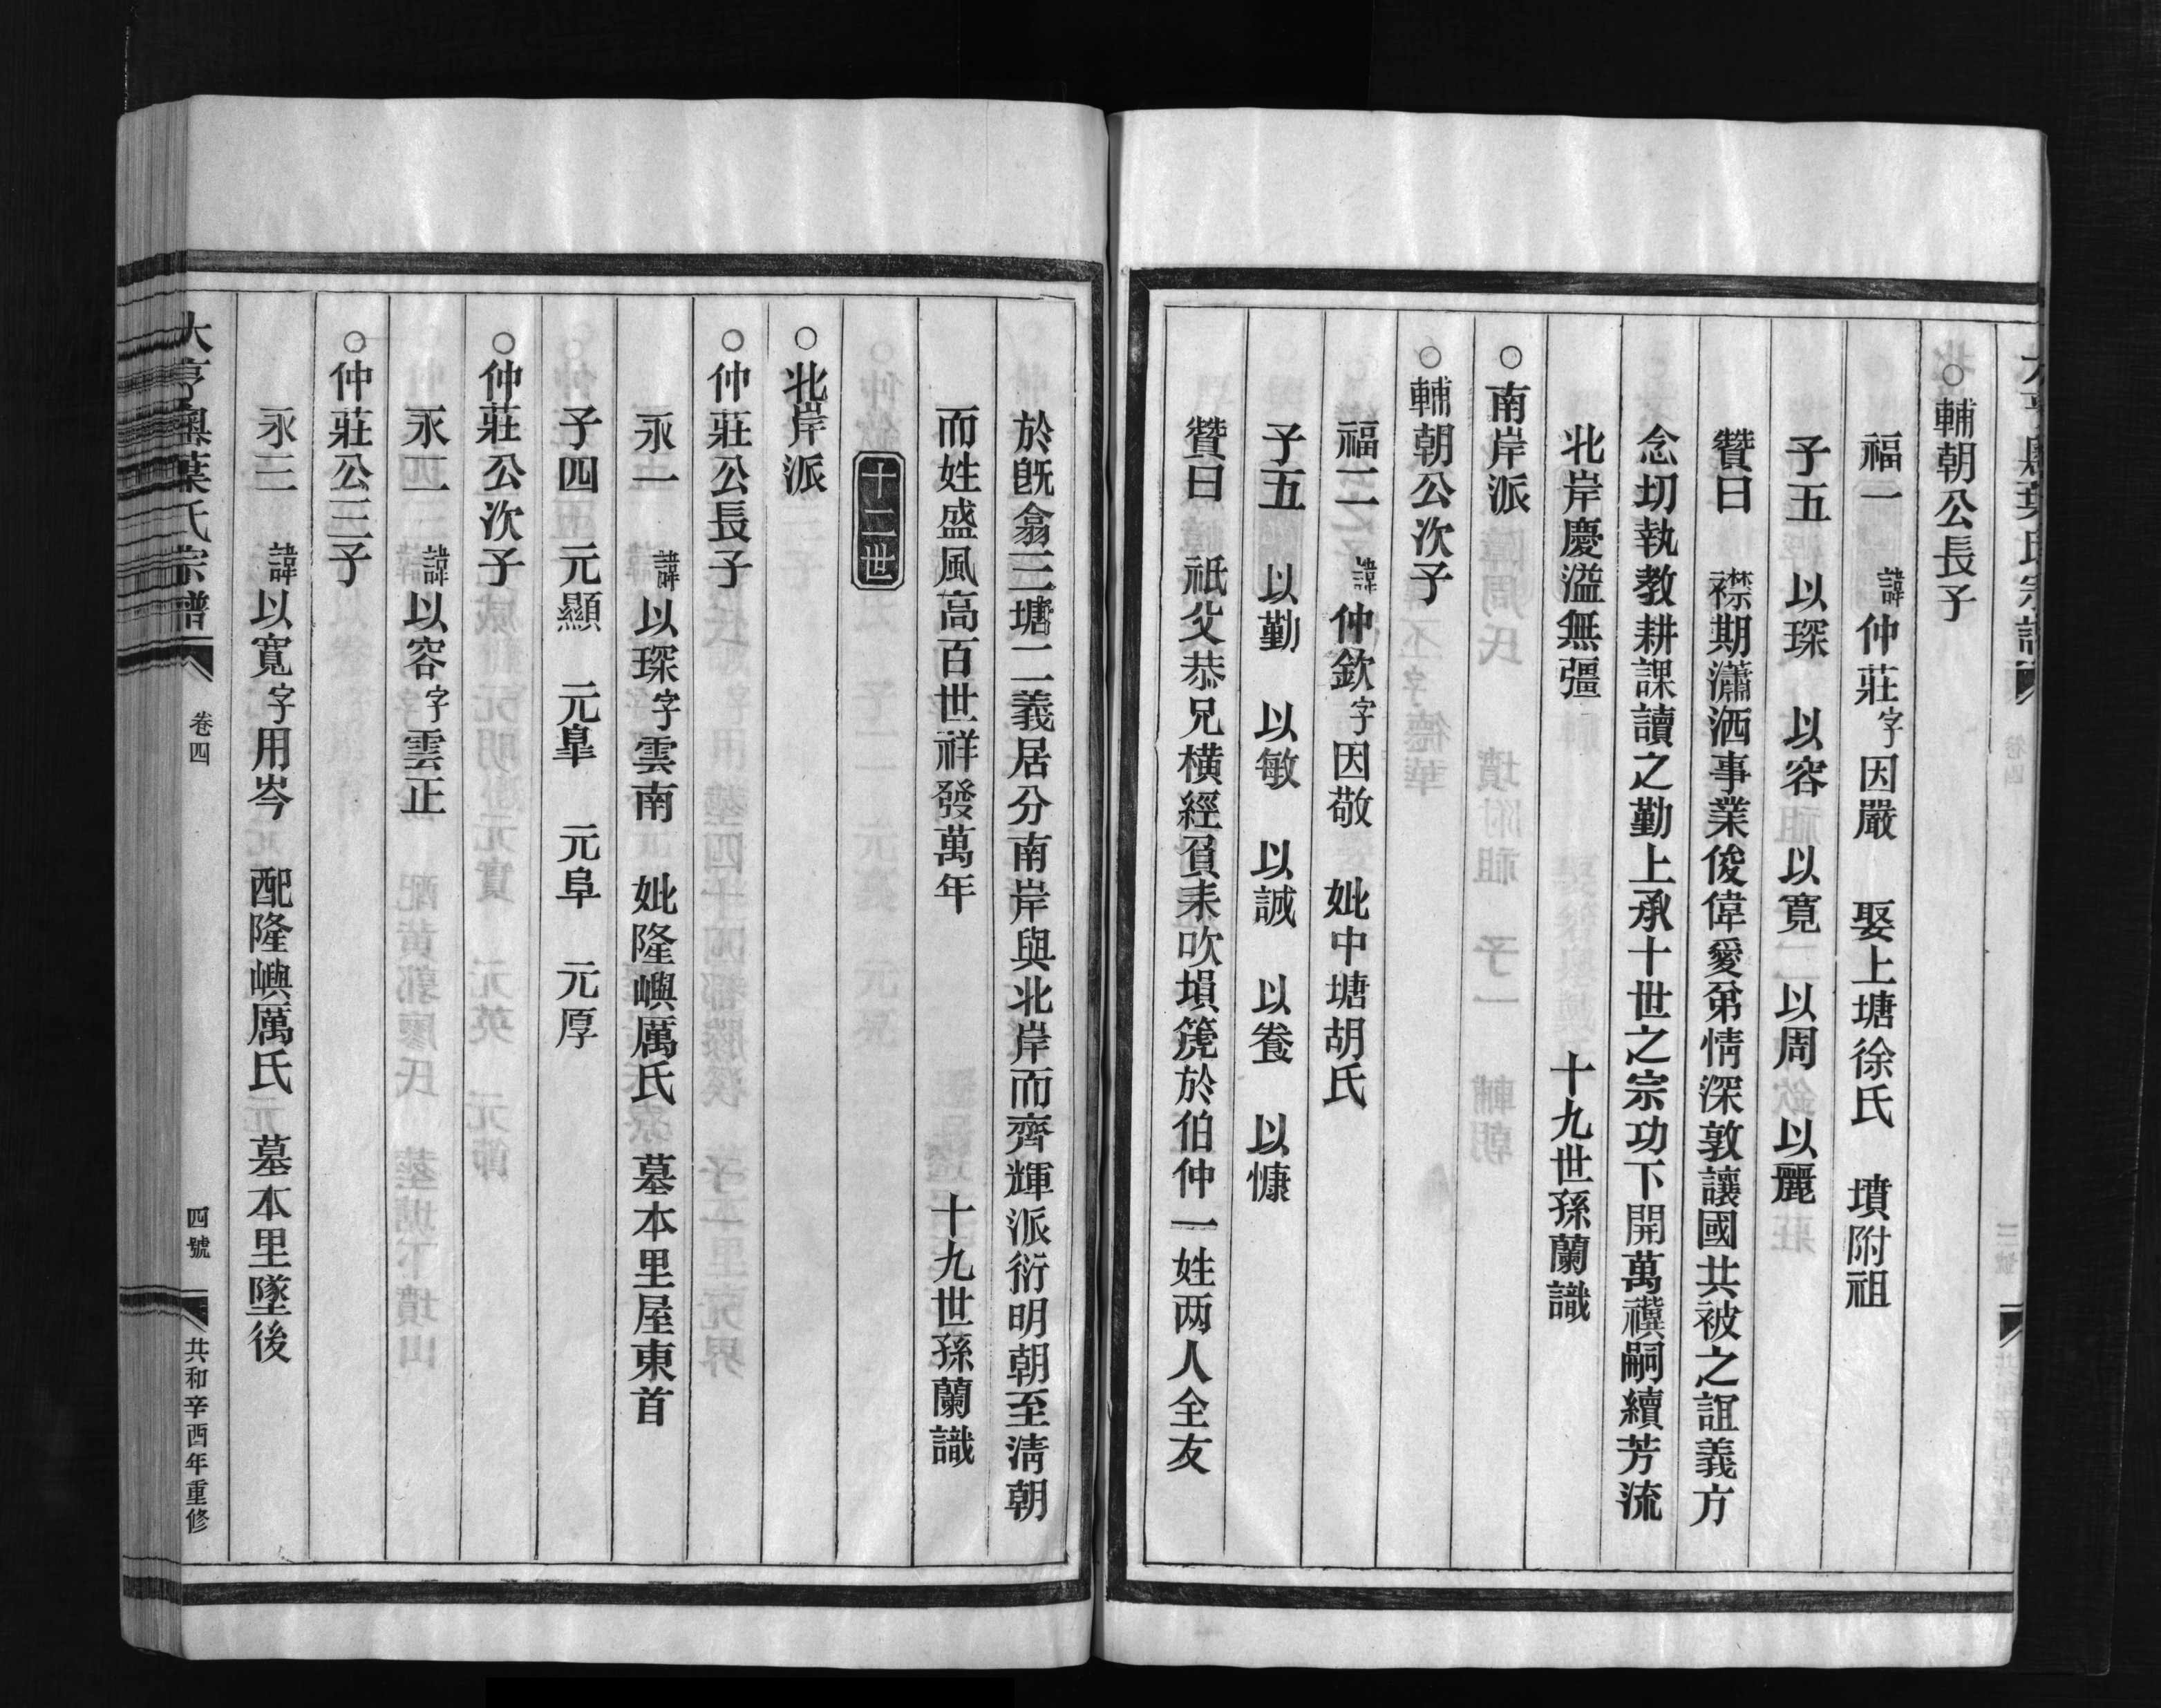 ○輔朝公長子
福一 諱仲莊字因嚴 娶上塘徐氏 墳附祖
子五 以琛 以容 以寬 以周 以麗
贊曰 襟期瀟洒事業俊偉愛弟情深敦讓國共被之誼義方
念切執教耕課讀之勤上承十世之宗功下開萬禩嗣續芳流
北岸慶溢無彊 十九世孫蘭識
○南岸派
○輔朝公次子
福二 諱仲欽字因敬 妣中塘胡氏
子五 以勤 以敏 以誠 以養 以慷
贊曰 祗父恭兄橫經負耒吹塤篪於伯仲一姓两人全友
於旣翕三塘二義居分南岸與北岸而齊輝派衍明朝至清朝
而姓盛風高百世祥發萬年 十九世孫蘭識
十二世
○北岸派
○仲莊公長子
永一 諱以琛字雲南 妣隆嶼厲氏 墓本里屋東首
子四 元顯 元皐 元阜 元厚
○仲莊公次子
永二 諱以容字雲正
○仲莊公三子
永三 諱以寬字用岑 配隆嶼厲氏 墓本里墜後
大亨奧葉氏宗譜 卷四 四號 共和辛酉年重修